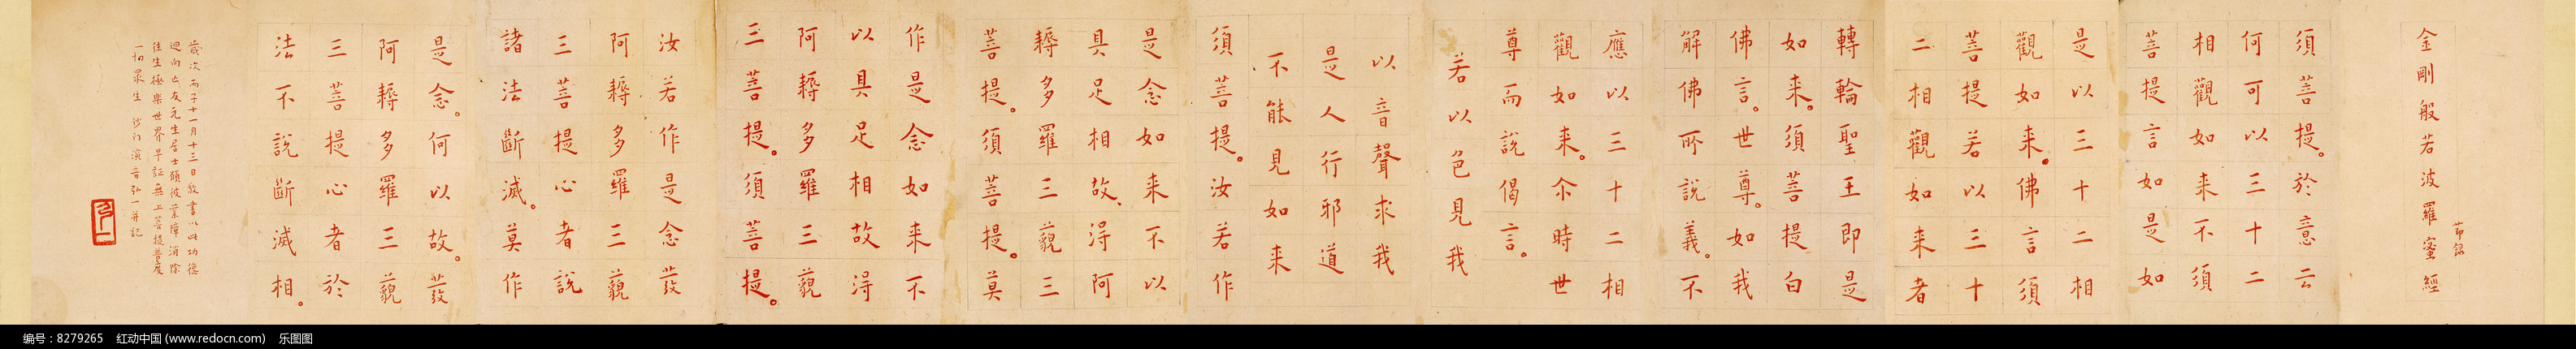 金剛般若波羅蜜經
節錄
須菩提。於意云
何可以三十二
相觀如来不須
菩提言如是如
是以三十二相
觀如来。佛言須
菩提若以三十
二相觀如来者
轉輪聖王即是
如来。須菩提白
佛言。世尊。如我
解佛所說義。不
應以三十二相
觀如来。尒時世
尊而說偈言。
若以色見我
以音聲求我
是人行邪道
不能見如来
須菩提。汝若作
是念如来不以
具足相故、得阿
耨多羅三藐三
菩提。須菩提。莫
作是念如来不
以具足相故得
阿耨多羅三藐
三菩提。須菩提。
汝若作是念發
阿耨多羅三藐
三菩提心者說
諸法斷滅。莫作
是念。何以故。發
阿耨多羅三藐
三菩提心者於
法不說斷滅相。
歲次丙子十一月十三日敬書以此功德
迴向亡友元生居士願彼業障消除
往生極樂世界早証無上菩提普度
一切眾生 沙門演音弘一并記
弘一
编号：8279265 红动中国 (www.redocn.com) 乐图图